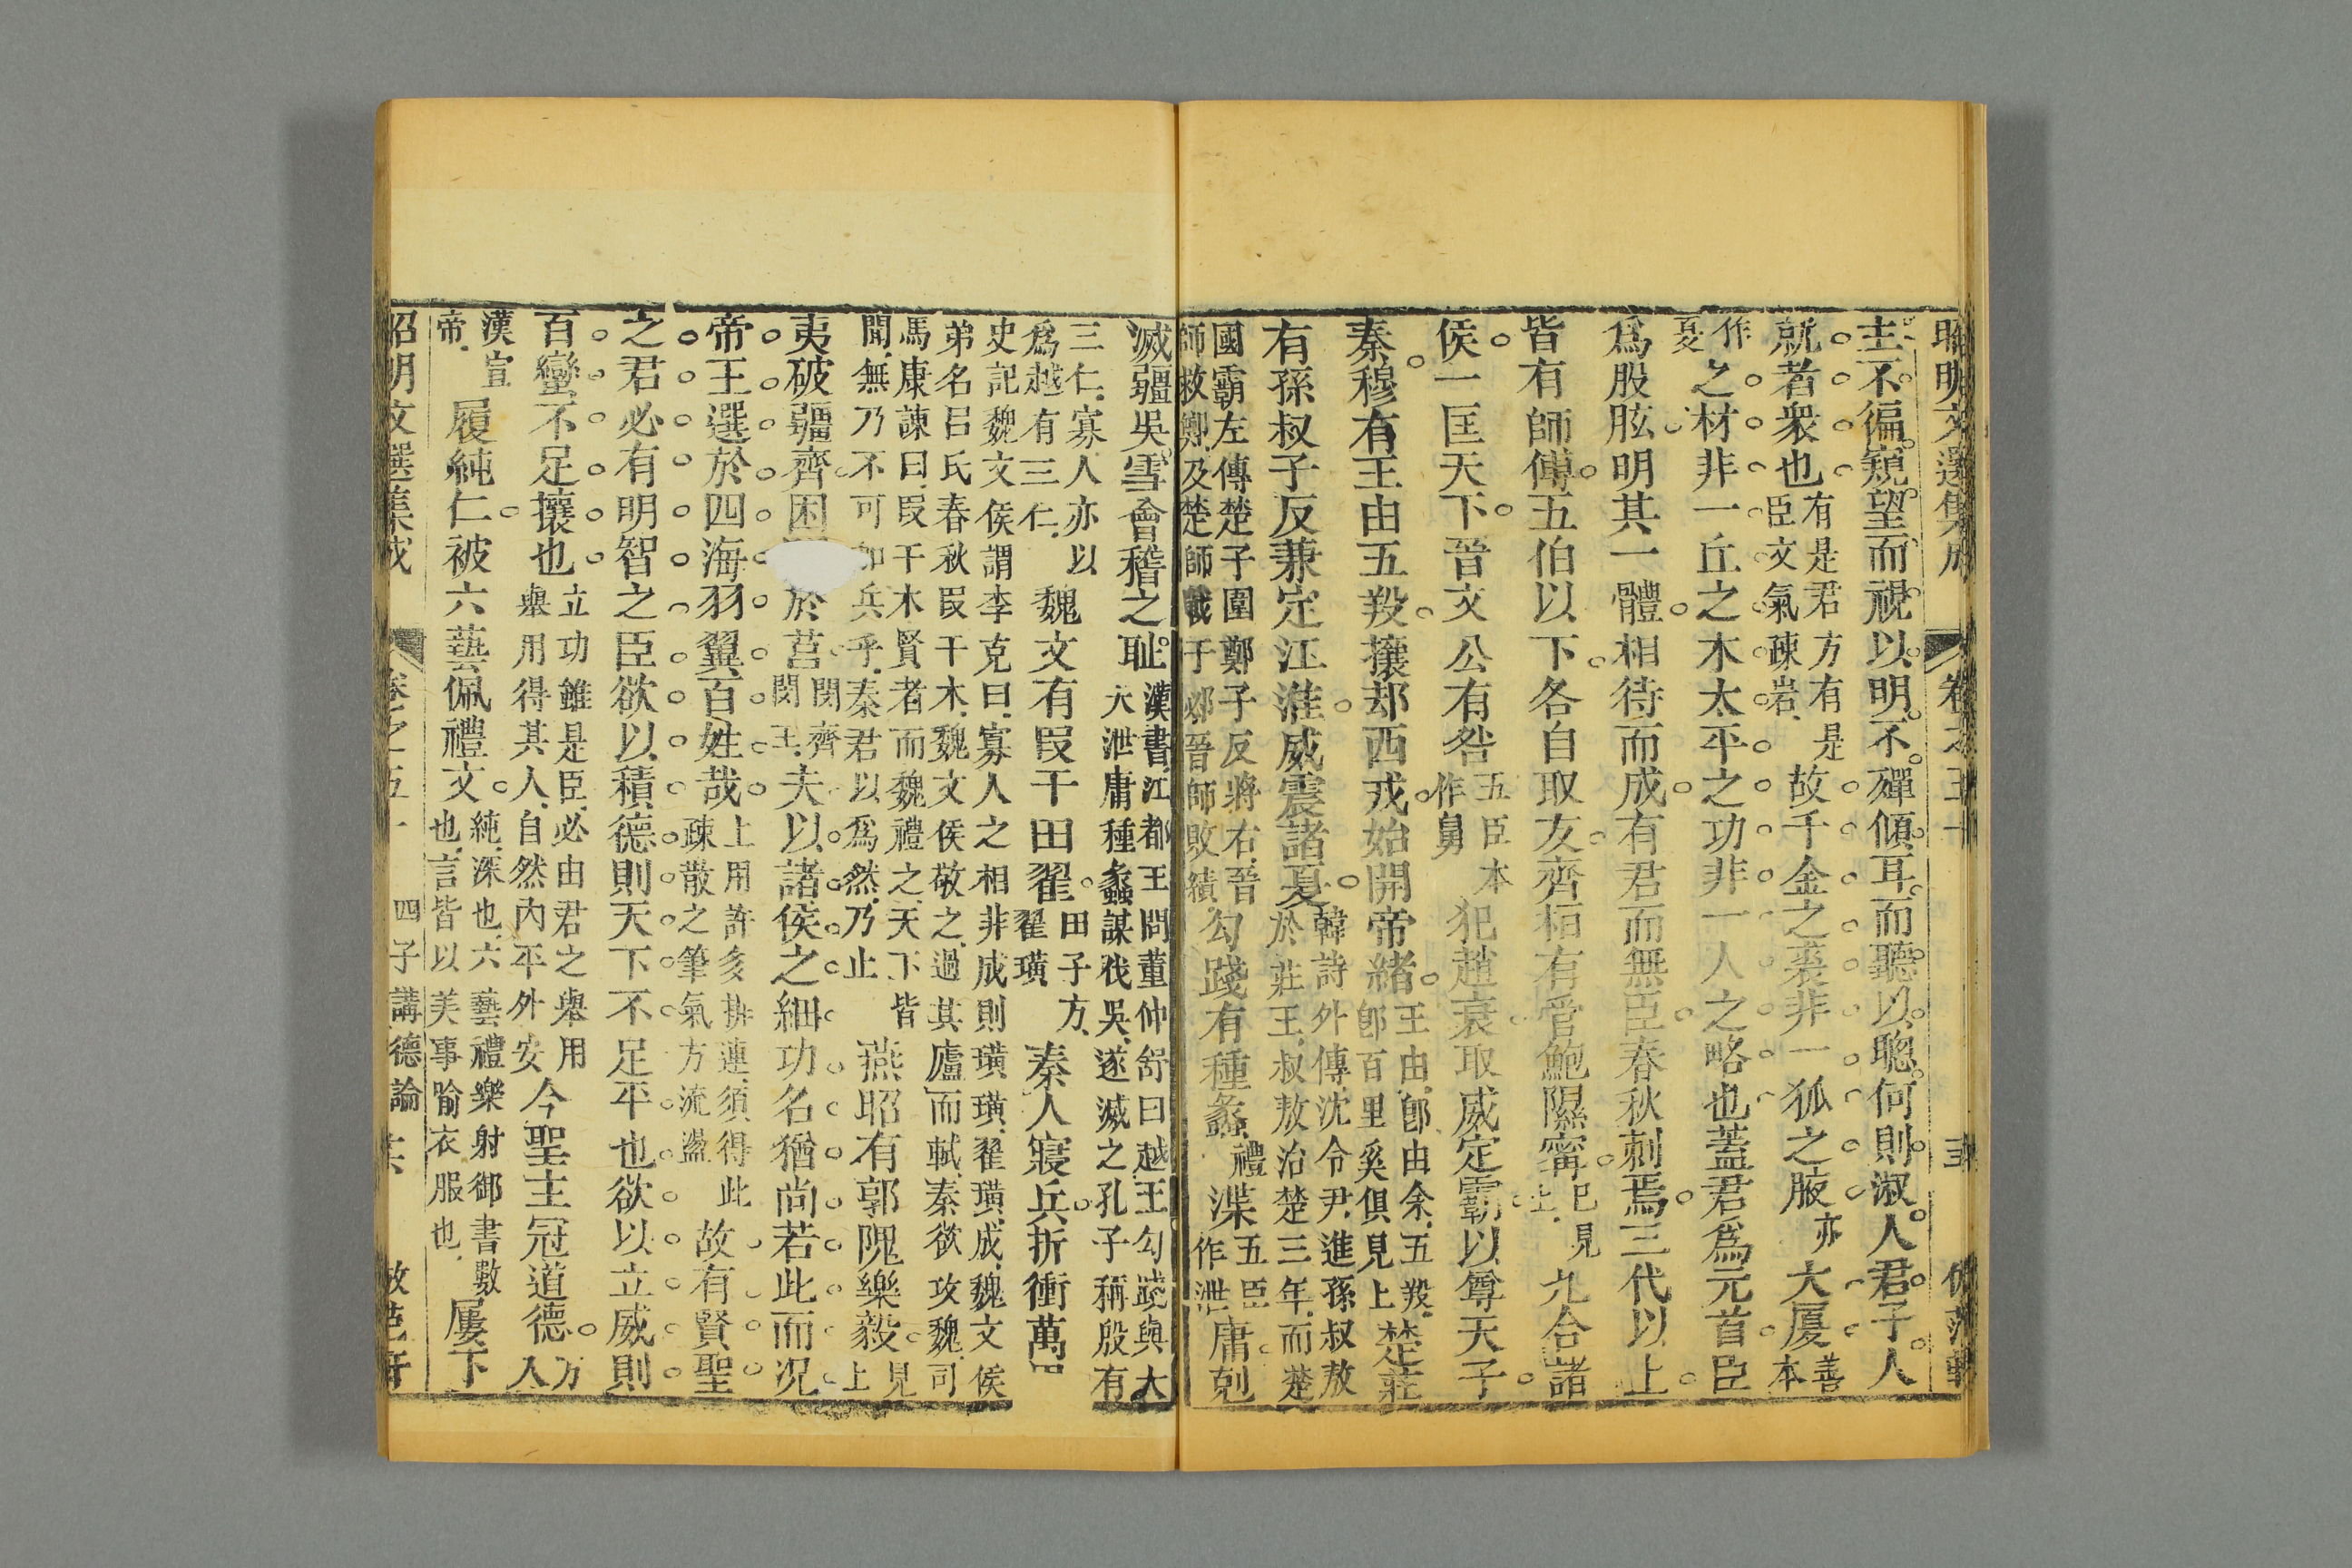 昭明文選集成 卷之五十
主不徧窺望而視以明不殫傾耳而聽以聰何則淑人君子人
就者衆也有是君方有是臣文氣疎岩故千金之裘非一狐之腋亦大厦善本
作夏之材非一丘之木太平之功非一人之略也蓋君爲元首臣
爲股肱明其一體相待而成有君而無臣春秋刺焉三代以上
皆有師傅五伯以下各自取友齊桓有管鮑隰甯已見上九合諸
侯一匡天下晉文公有咎五臣本作舅犯趙衰取威定霸以尊天子
秦穆有王由五羖攘却西戎始開帝緒王由卽由余五羖卽百里奚俱見上楚莊
有孫叔子反兼定江淮威震諸夏韓詩外傳沈令尹進孫叔敖於莊王叔敖治楚三年而楚
國霸左傳楚子圍鄭子反將右晉師救鄭及楚師戰于邲晉師敗績勾踐有種蠡禮渫五臣作泄庸剋
滅彊吳雪會稽之耻漢書江都王問董仲舒曰越王勾踐與大夫泄庸種蠡謀伐吳遂滅之孔子稱殷有
三仁寡人亦以爲越有三仁魏文有段干田翟田子方翟璜秦人寢兵折衝萬里
史記魏文侯謂李克曰寡人之相非成則璜璜翟璜成魏文侯弟名呂氏春秋段干木魏文侯敬之過其廬而軾秦欲攻魏司
馬康諫曰段干木賢者而魏禮之天下皆聞無乃不可加兵乎秦君以爲然乃止燕昭有郭隗樂毅見上
夷破彊齊困於莒閔齊閔王夫以諸侯之細功名猶尚若此而况
帝王選於四海羽翼百姓哉上用許多排連須得此疎散之筆氣方流盪故有賢聖
之君必有明智之臣欲以積德則天下不足平也欲以立威則
百蠻不足攘也立功雖是臣必由君之舉用舉用得其人自然內平外安今聖主冠道德方入
漢宣帝履純仁被六藝佩禮文純深也六藝禮樂射御書數也言皆以美事喻衣服也屢下
昭明文選集成 卷之五十 四子講德論